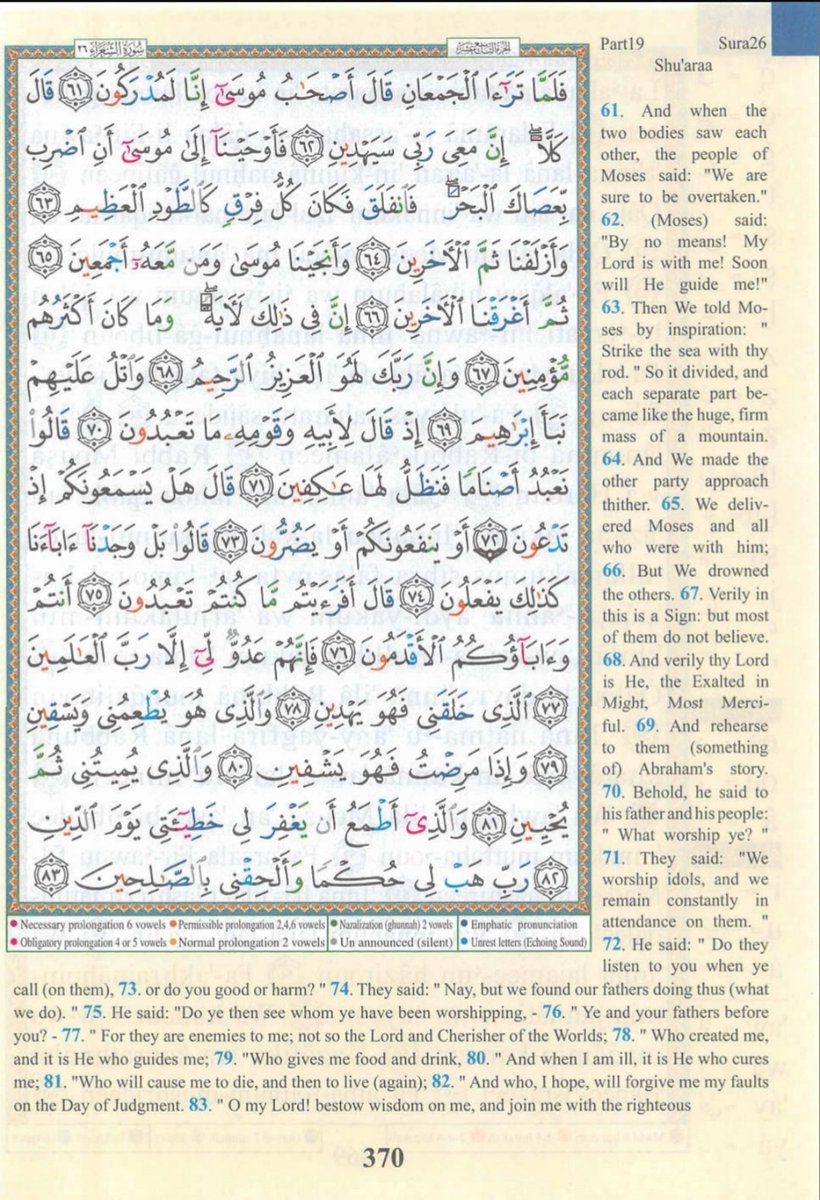 سورة الشعراء ٢٦
الجزء التاسع عشر
Part19 Sura26
Shu'araa
فَلَمَّا تَرَٰٓءَا ٱلْجَمْعَانِ قَالَ أَصْحَٰبُ مُوسَىٰٓ إِنَّا لَمُدْرَكُونَ ٦١ قَالَ
كَلَّآ إِنَّ مَعِىَ رَبِّى سَيَهْدِينِ ٦٢ فَأَوْحَيْنَآ إِلَىٰ مُوسَىٰٓ أَنِ ٱضْرِب
بِّعَصَاكَ فَٱنفَلَقَ فَكَانَ كُلُّ فِرْقٍ كَٱلطَّوْدِ ٱلْعَظِيمِ ٦٣
وَأَزْلَفْنَا ثَمَّ ٱلْءَاخَرِينَ ٦٤ وَأَنجَيْنَا مُوسَىٰ وَمَن مَّعَهُۥٓ أَجْمَعِينَ ٦٥
ثُمَّ أَغْرَقْنَا ٱلْءَاخَرِينَ ٦٦ إِنَّ فِى ذَٰلِكَ لَءَايَةً وَمَا كَانَ أَكْثَرُهُم
مُّؤْمِنِينَ ٦٧ وَإِنَّ رَبَّكَ لَهُوَ ٱلْعَزِيزُ ٱلرَّحِيمُ ٦٨ وَٱتْلُ عَلَيْهِمْ
نَبَأَ إِبْرَٰهِيمَ ٦٩ إِذْ قَالَ لِأَبِيهِ وَقَوْمِهِۦ مَا تَعْبُدُونَ ٧٠ قَالُوا۟
نَعْبُدُ أَصْنَامًا فَنَظَلُّ لَهَا عَٰكِفِينَ ٧١ قَالَ هَلْ يَسْمَعُونَكُمْ إِذْ
تَدْعُونَ ٧٢ أَوْ يَنفَعُونَكُمْ أَوْ يَضُرُّونَ ٧٣ قَالُوا۟ بَلْ وَجَدْنَآ ءَابَآءَنَا
كَذَٰلِكَ يَفْعَلُونَ ٧٤ قَالَ أَفَرَءَيْتُم مَّا كُنتُمْ تَعْبُدُونَ ٧٥ أَنتُمْ
وَءَابَآؤُكُمُ ٱلْأَقْدَمُونَ ٧٦ فَإِنَّهُمْ عَدُوٌّ لِّىٓ إِلَّا رَبَّ ٱلْعَٰلَمِينَ
٧٧ ٱلَّذِى خَلَقَنِى فَهُوَ يَهْدِينِ ٧٨ وَٱلَّذِى هُوَ يُطْعِمُنِى وَيَسْقِينِ
٧٩ وَإِذَا مَرِضْتُ فَهُوَ يَشْفِينِ ٨٠ وَٱلَّذِى يُمِيتُنِى ثُمَّ
يُحْيِينِ ٨١ وَٱلَّذِىٓ أَطْمَعُ أَن يَغْفِرَ لِى خَطِيٓـَٔتِى يَوْمَ ٱلدِّينِ
٨٢ رَبِّ هَبْ لِى حُكْمًا وَأَلْحِقْنِى بِٱلصَّٰلِحِينَ ٨٣
Necessary prolongation 6 vowels Permissible prolongation 2,4,6 vowels Nazalization (ghunnah) 2 vowels Emphatic pronunciation
Obligatory prolongation 4 or 5 vowels Normal prolongation 2 vowels Un announced (silent) Unrest letters (Echoing Sound)
61. And when the
two bodies saw each
other, the people of
Moses said: "We are
sure to be overtaken."
62. (Moses) said:
"By no means! My
Lord is with me! Soon
will He guide me!"
63. Then We told Mo-
ses by inspiration: "
Strike the sea with thy
rod. " So it divided, and
each separate part be-
came like the huge, firm
mass of a mountain.
64. And We made the
other party approach
thither. 65. We deliv-
ered Moses and all
who were with him;
66. But We drowned
the others. 67. Verily in
this is a Sign: but most
of them do not believe.
68. And verily thy Lord
is He, the Exalted in
Might, Most Merci-
ful. 69. And rehearse
to them (something
of) Abraham's story.
70. Behold, he said to
his father and his people:
" What worship ye? "
71. They said: "We
worship idols, and we
remain constantly in
attendance on them. "
72. He said: " Do they
listen to you when ye
call (on them), 73. or do you good or harm? " 74. They said: " Nay, but we found our fathers doing thus (what
we do). " 75. He said: "Do ye then see whom ye have been worshipping, - 76. " Ye and your fathers before
you? - 77. " For they are enemies to me; not so the Lord and Cherisher of the Worlds; 78. " Who created me,
and it is He who guides me; 79. "Who gives me food and drink, 80. " And when I am ill, it is He who cures
me; 81. "Who will cause me to die, and then to live (again); 82. " And who, I hope, will forgive me my faults
on the Day of Judgment. 83. " O my Lord! bestow wisdom on me, and join me with the righteous
370